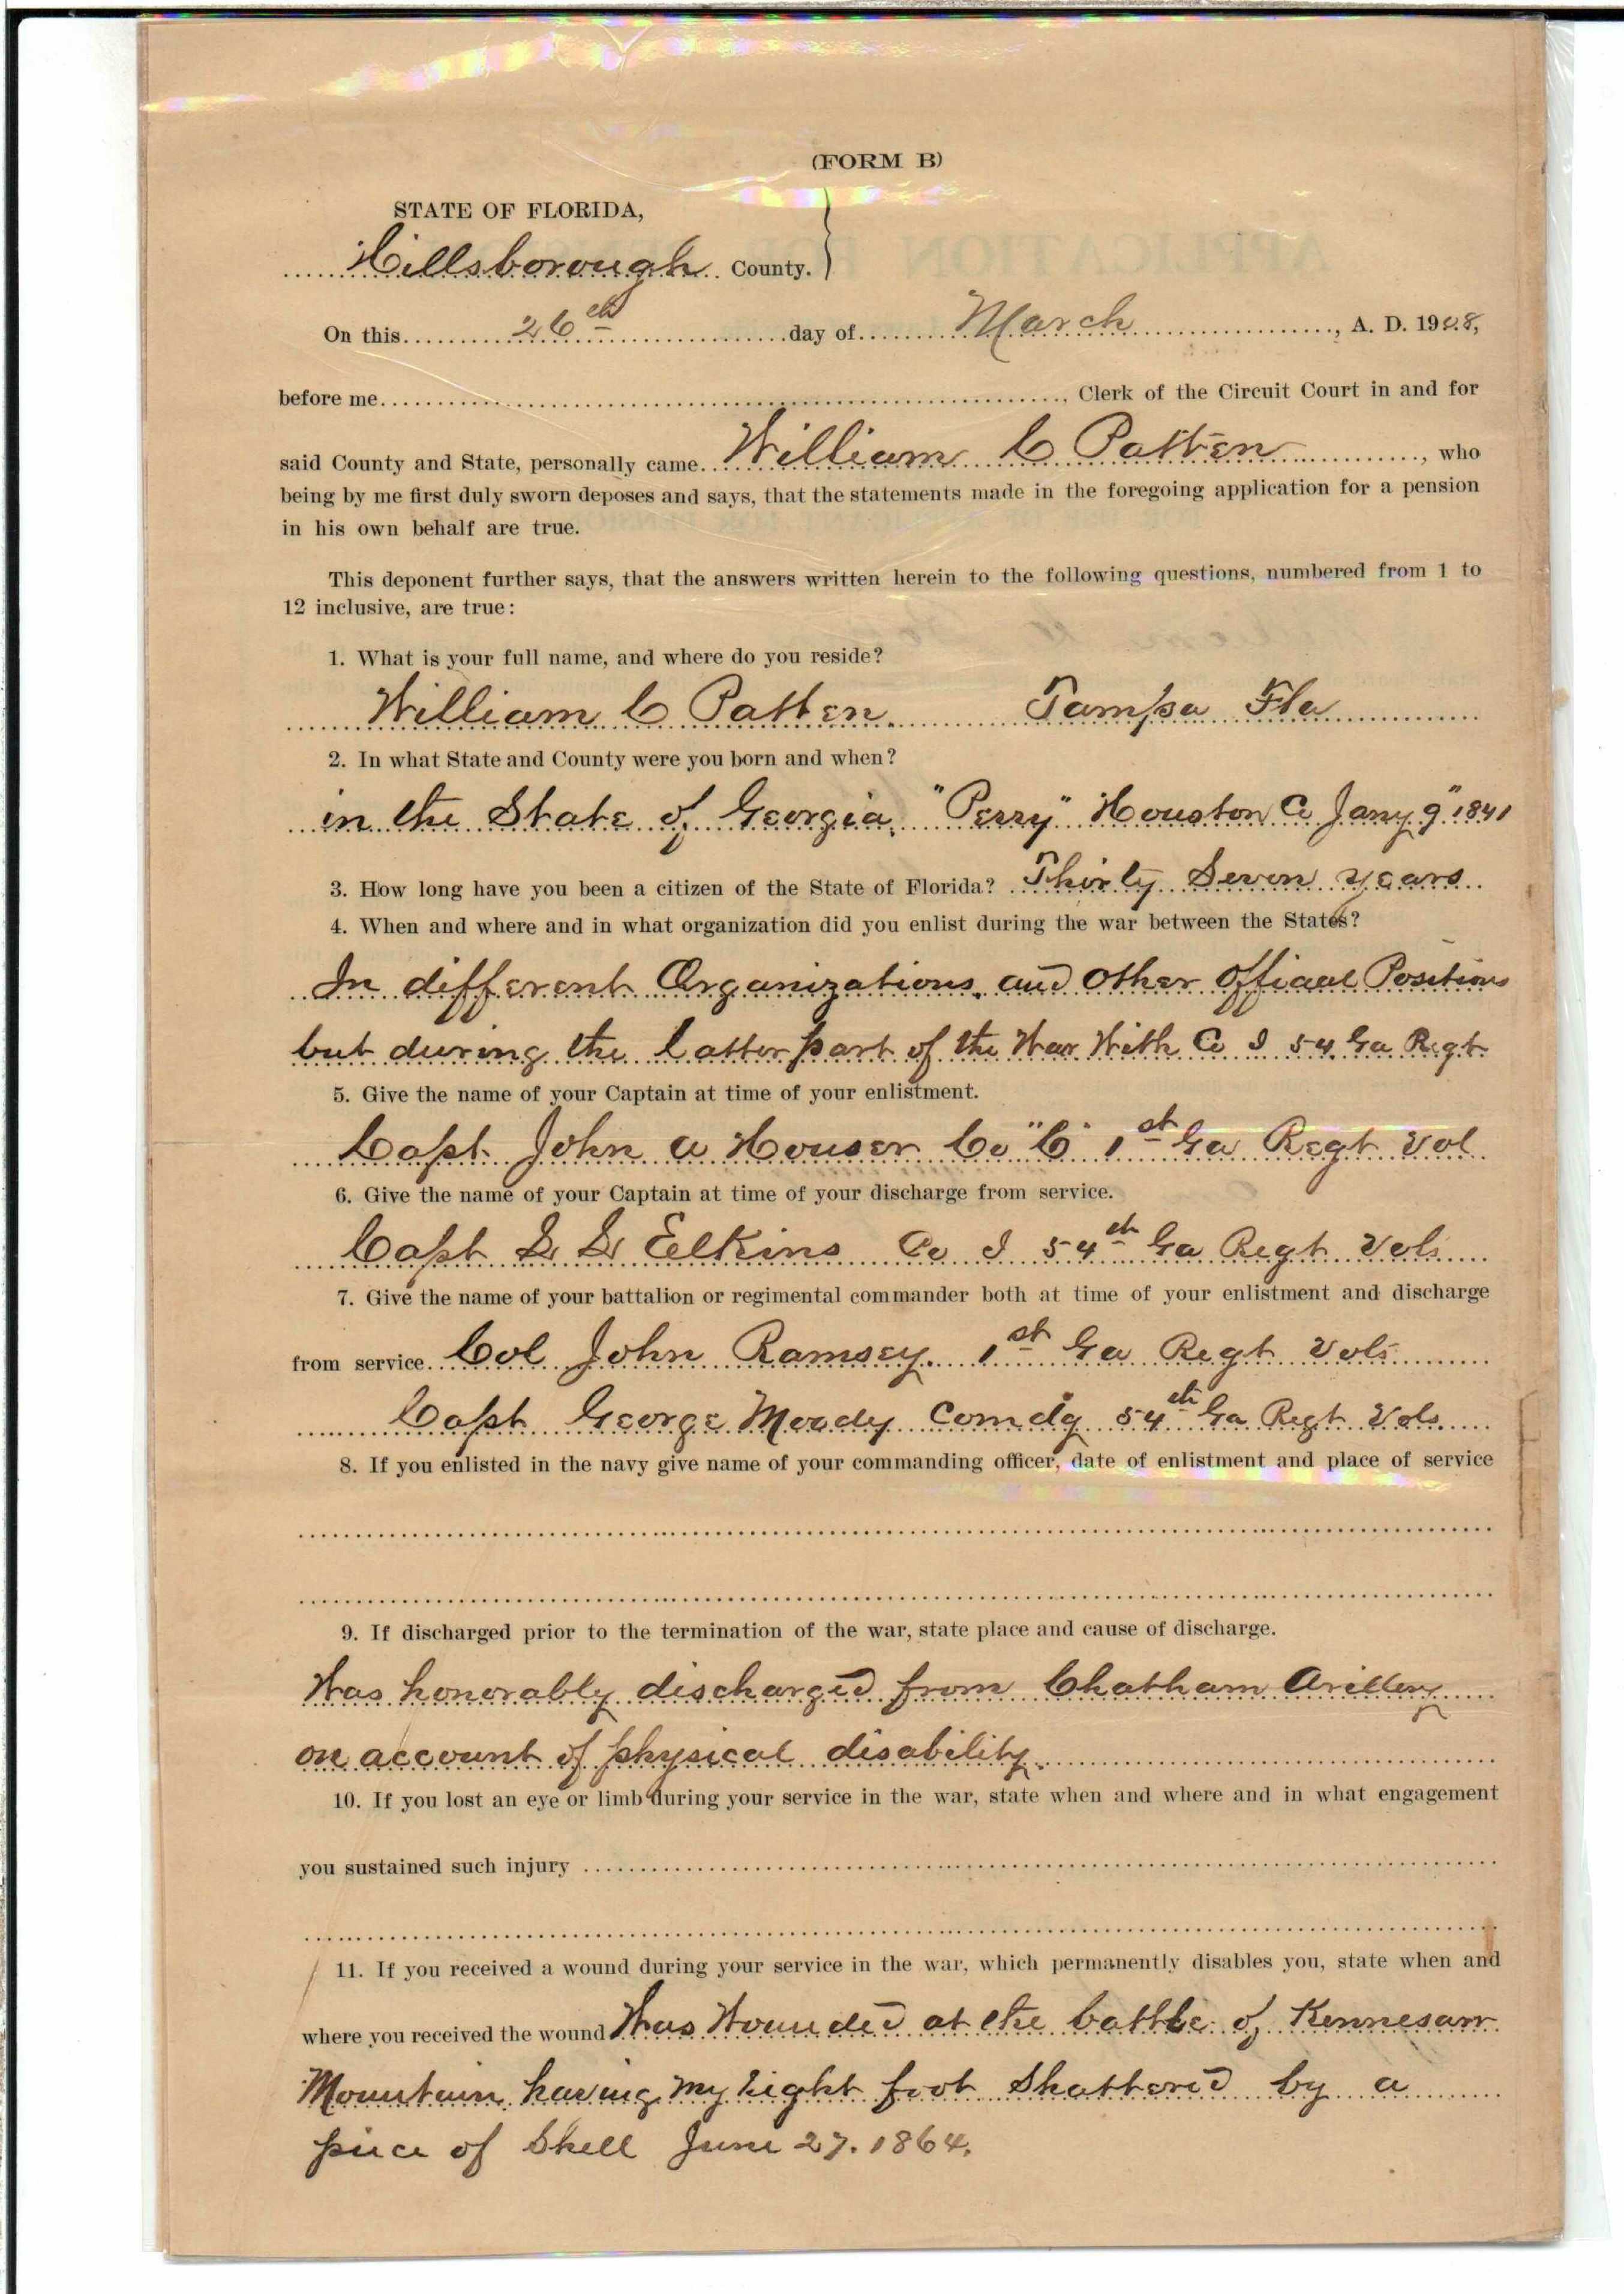 (FORM B)
STATE OF FLORIDA,
Hillsborough County.
On this 26th day of March, A. D. 1908,
before me, Clerk of the Circuit Court in and for
said County and State, personally came William C Patten, who
being by me first duly sworn deposes and says, that the statements made in the foregoing application for a pension
in his own behalf are true.
This deponent further says, that the answers written herein to the following questions, numbered from 1 to
12 inclusive, are true:
1. What is your full name, and where do you reside?
William C Patten. Tampa Fla
2. In what State and County were you born and when?
in the State of Georgia, "Perry" Houston Co Jany 9" 1841
3. How long have you been a citizen of the State of Florida? Thirty Seven years
4. When and where and in what organization did you enlist during the war between the States?
In different Organizations, and other official Positions
but during the latter part of the War With Co I 54 Ga Regt
5. Give the name of your Captain at time of your enlistment.
Capt. John A Houser Co "C" 1st Ga Regt Vol
6. Give the name of your Captain at time of your discharge from service.
Capt Elkins Co I 54th Ga Regt Vols
7. Give the name of your battalion or regimental commander both at time of your enlistment and discharge
from service Col John Ramsey. 1st Ga Regt Vols
Capt George Moody Comdg 54th Ga Regt Vols
8. If you enlisted in the navy give name of your commanding officer, date of enlistment and place of service
9. If discharged prior to the termination of the war, state place and cause of discharge.
Was honorably discharged from Chatham Arillery
on account of physical disability.
10. If you lost an eye or limb during your service in the war, state when and where and in what engagement
you sustained such injury
11. If you received a wound during your service in the war, which permanently disables you, state when and
where you received the wound Was Wounded at the battle of Kennesaw
Mountain, having my right foot Shattered by a
piece of Shell June 27. 1864.